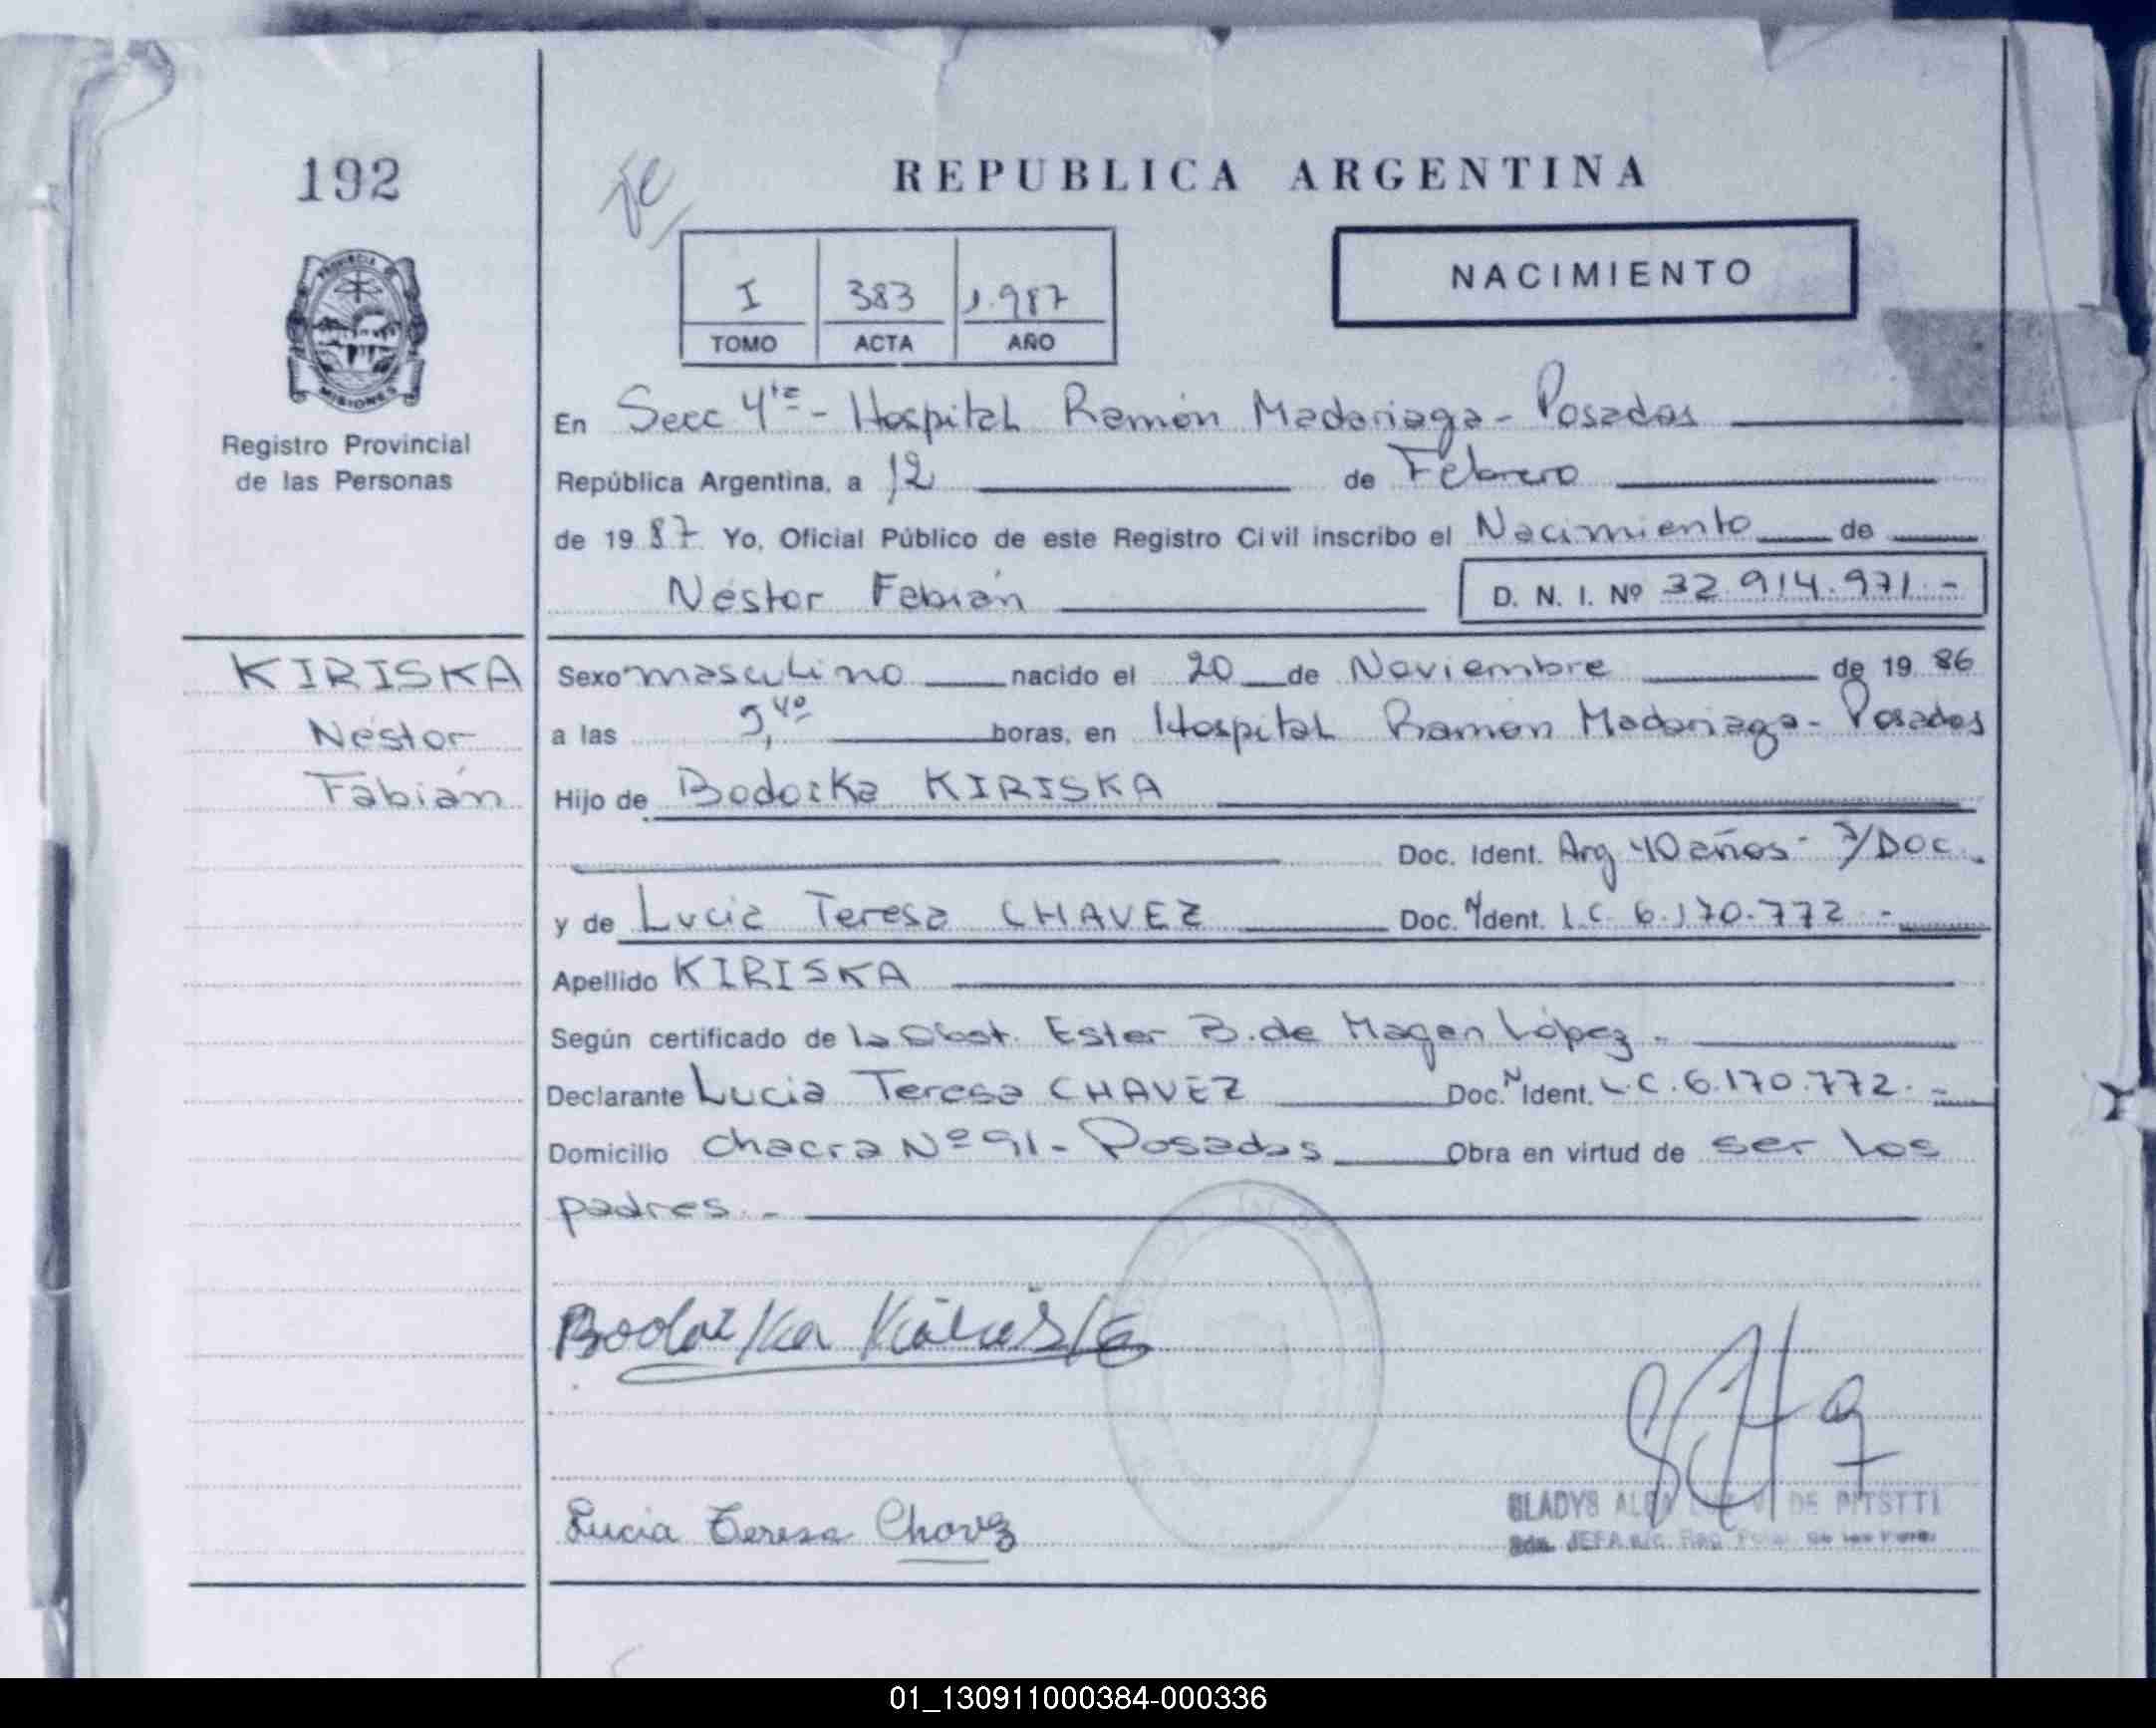 192
REPUBLICA ARGENTINA
PROVINCIA DE
MISIONES
Registro Provincial
de las Personas
I 383 1.987
TOMO ACTA AÑO
NACIMIENTO
En Secc 4ta - Hospital Ramón Madariaga - Posadas
República Argentina, a 12 de Febrero
de 1987 Yo, Oficial Público de este Registro Civil inscribo el Nacimiento de
Néstor Fabián D. N. I. Nº 32.914.971.-
KIRISKA
Néstor
Fabián
Sexo masculino nacido el 20 de Noviembre de 1986
a las 9,40 horas, en Hospital Ramón Madariaga - Posadas
Hijo de Bodoika KIRISKA
Doc. Ident. Arg 40 años - /Doc.
y de Lucia Teresa CHAVEZ Doc. N Ident. L.C. 6.170.772.-
Apellido KIRISKA
Según certificado de la Obst. Ester B. de Magan López.-
Declarante Lucia Teresa CHAVEZ Doc. N Ident. L.C. 6.170.772.-
Domicilio Chacra Nº 91 - Posadas Obra en virtud de ser los
padres.-
Lucia Teresa Chavez
GLADYS DE
JEFA
01_130911000384-000336